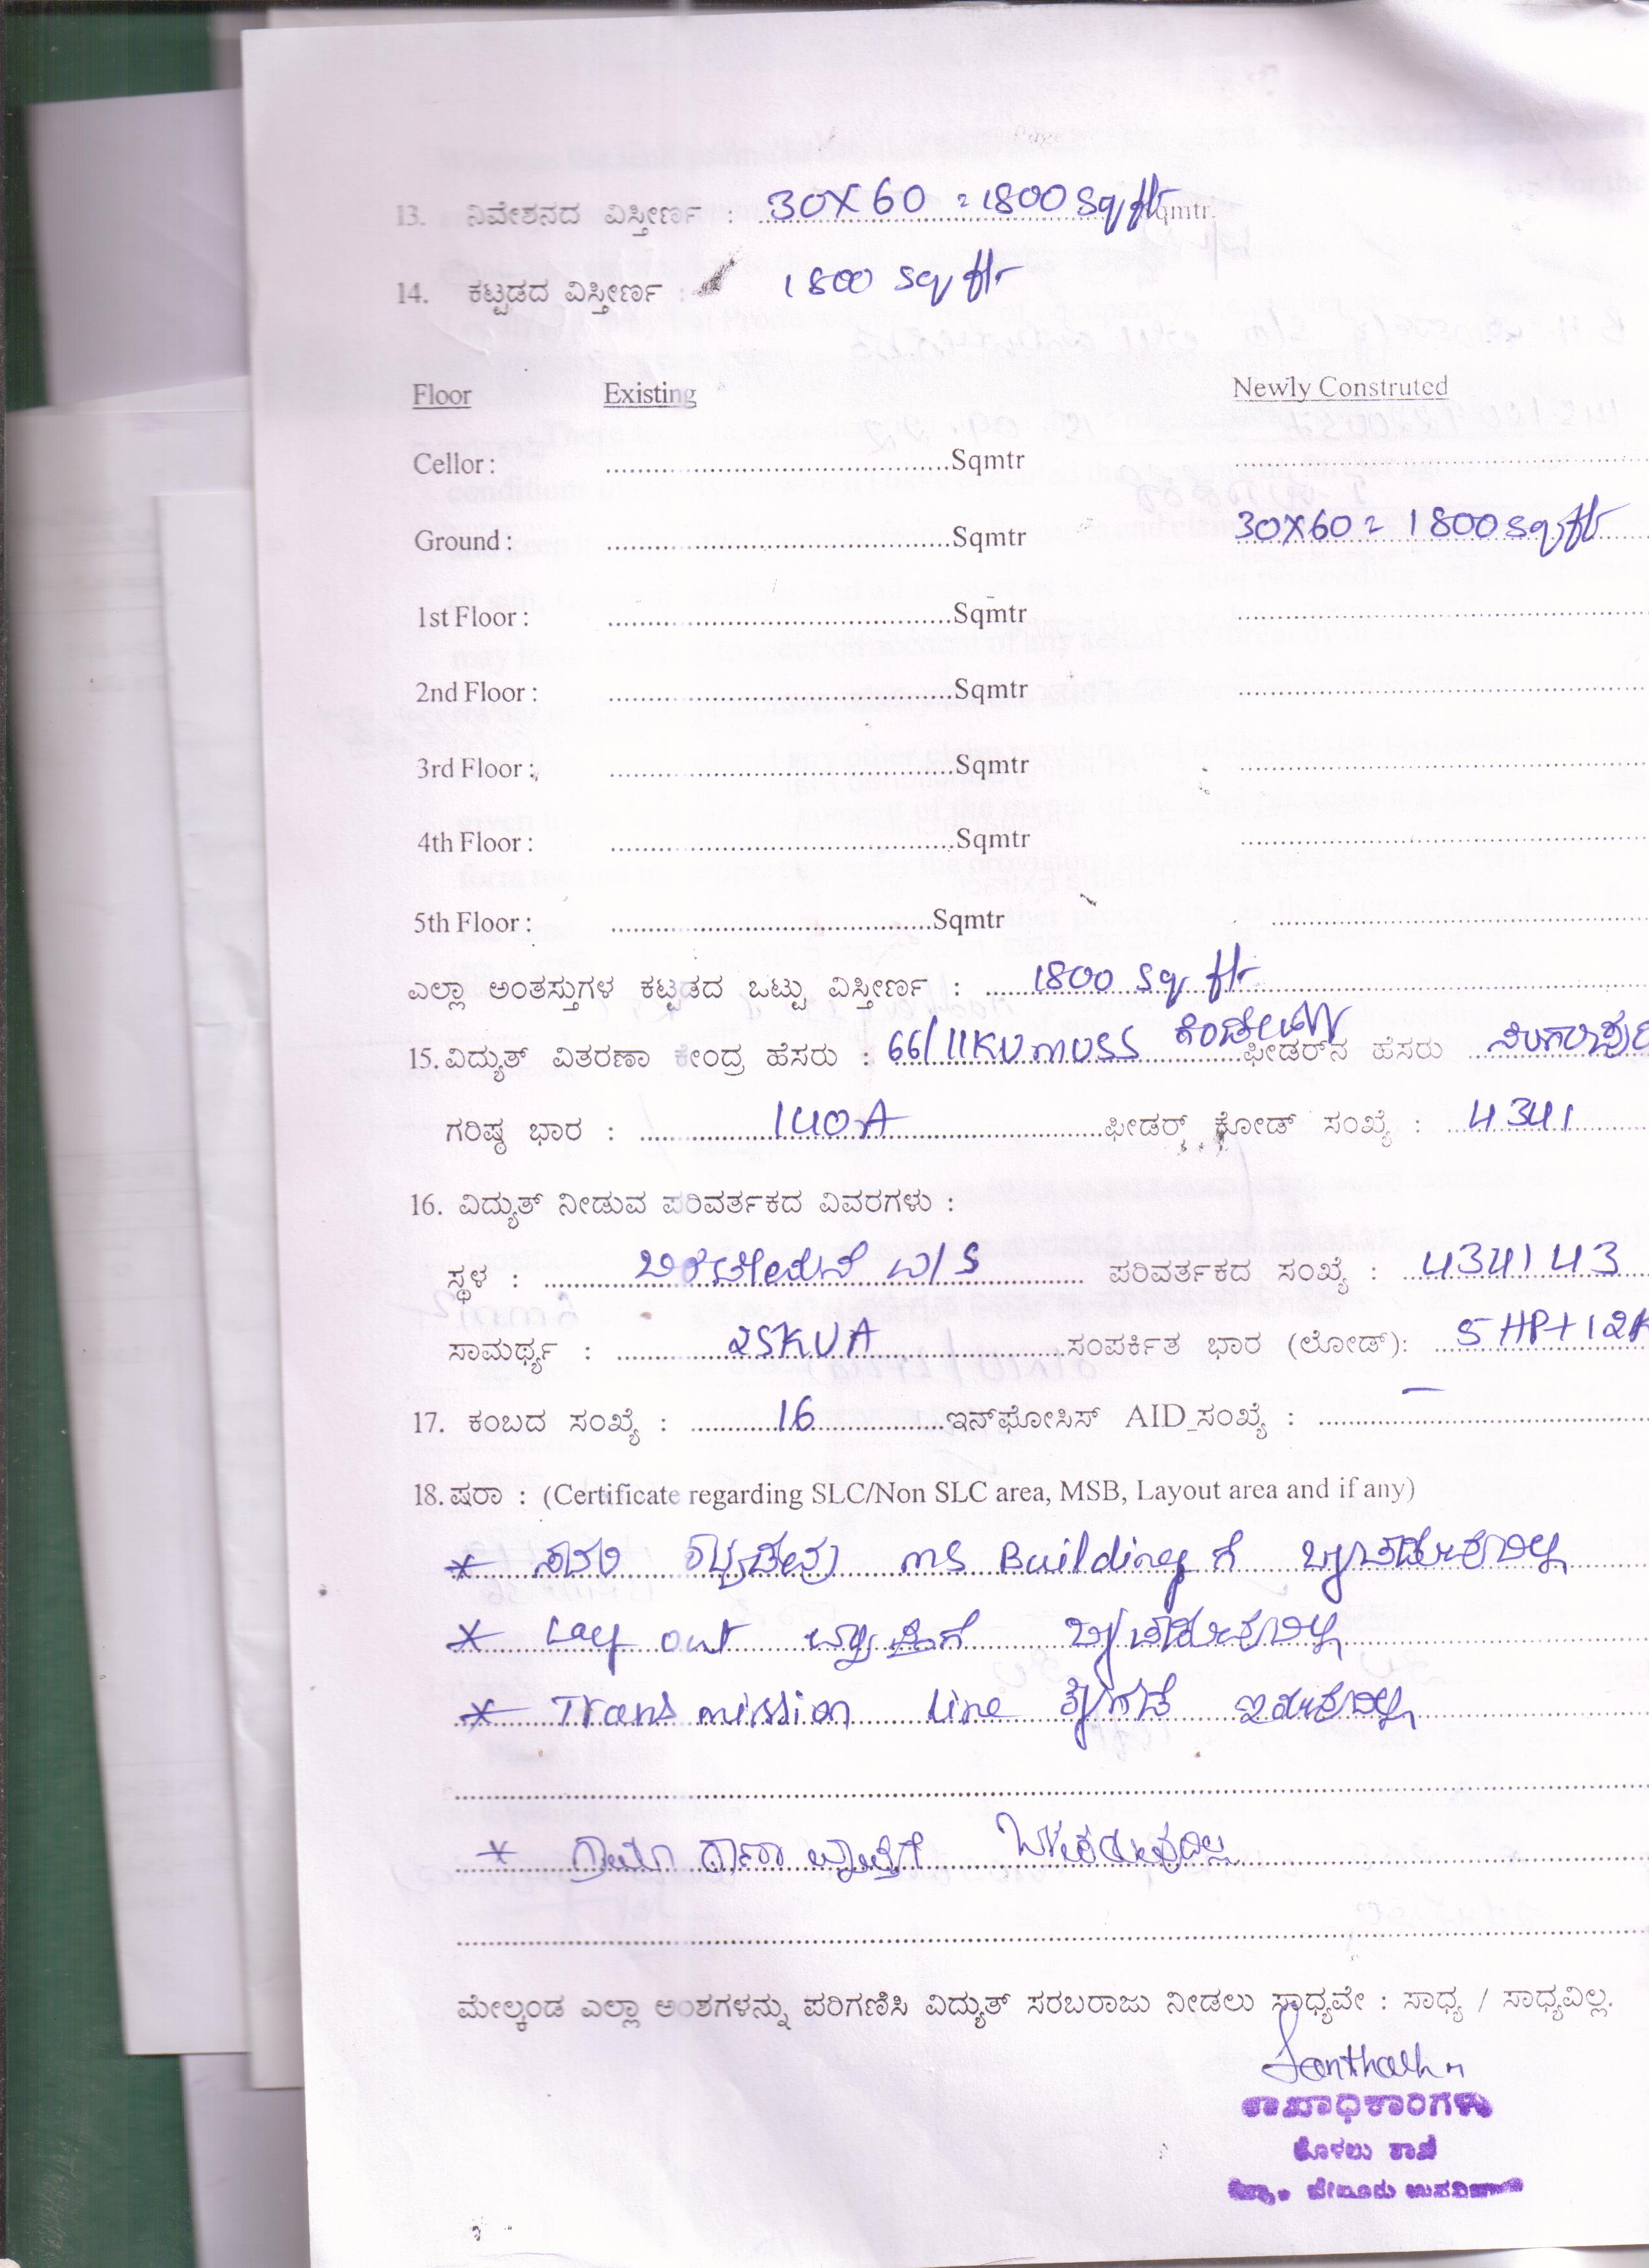 13. ನಿವೇಶನದ ವಿಸ್ತೀರ್ಣ : 30X60 = 1800 Sq ft Sqmtr.
14. ಕಟ್ಟಡದ ವಿಸ್ತೀರ್ಣ : 1800 Sq ft
Floor Existing Newly Construted
Cellor : Sqmtr
Ground : Sqmtr 30X60 = 1800 Sq ft
1st Floor : Sqmtr
2nd Floor : Sqmtr
3rd Floor : Sqmtr
4th Floor : Sqmtr
5th Floor : Sqmtr
ಎಲ್ಲಾ ಅಂತಸ್ತುಗಳ ಕಟ್ಟಡದ ಒಟ್ಟು ವಿಸ್ತೀರ್ಣ : 1800 Sq ft
15. ವಿದ್ಯುತ್ ವಿತರಣಾ ಕೇಂದ್ರ ಹೆಸರು : 66/11KV MUSS ಫೀಡರ್‌ನ ಹೆಸರು
ಗರಿಷ್ಠ ಭಾರ : 140A ಫೀಡರ್ ಕೋಡ್ ಸಂಖ್ಯೆ : 4341
16. ವಿದ್ಯುತ್ ನೀಡುವ ಪರಿವರ್ತಕದ ವಿವರಗಳು :
ಸ್ಥಳ : ಪರಿವರ್ತಕದ ಸಂಖ್ಯೆ : 4341 43
ಸಾಮರ್ಥ್ಯ : 25KVA ಸಂಪರ್ಕಿತ ಭಾರ (ಲೋಡ್): 5 HP+12K
17. ಕಂಬದ ಸಂಖ್ಯೆ : 16 ಇನ್‌ಫೋಸಿಸ್ AID_ಸಂಖ್ಯೆ : –
18. ಷರಾ : (Certificate regarding SLC/Non SLC area, MSB, Layout area and if any)
* ಸದರಿ ಕಟ್ಟಡವು MS Building ಗೆ
* Lay out ವ್ಯಾಪ್ತಿಗೆ
* Transmission line ಕೆಳಗಡೆ ಇರುವುದಿಲ್ಲ
* ಗ್ರಾಮ ಠಾಣಾ ವ್ಯಾಪ್ತಿಗೆ
ಮೇಲ್ಕಂಡ ಎಲ್ಲಾ ಅಂಶಗಳನ್ನು ಪರಿಗಣಿಸಿ ವಿದ್ಯುತ್ ಸರಬರಾಜು ನೀಡಲು ಸಾಧ್ಯವೇ : ಸಾಧ್ಯ / ಸಾಧ್ಯವಿಲ್ಲ.
ಶಾಖಾಧಿಕಾರಿಗಳು